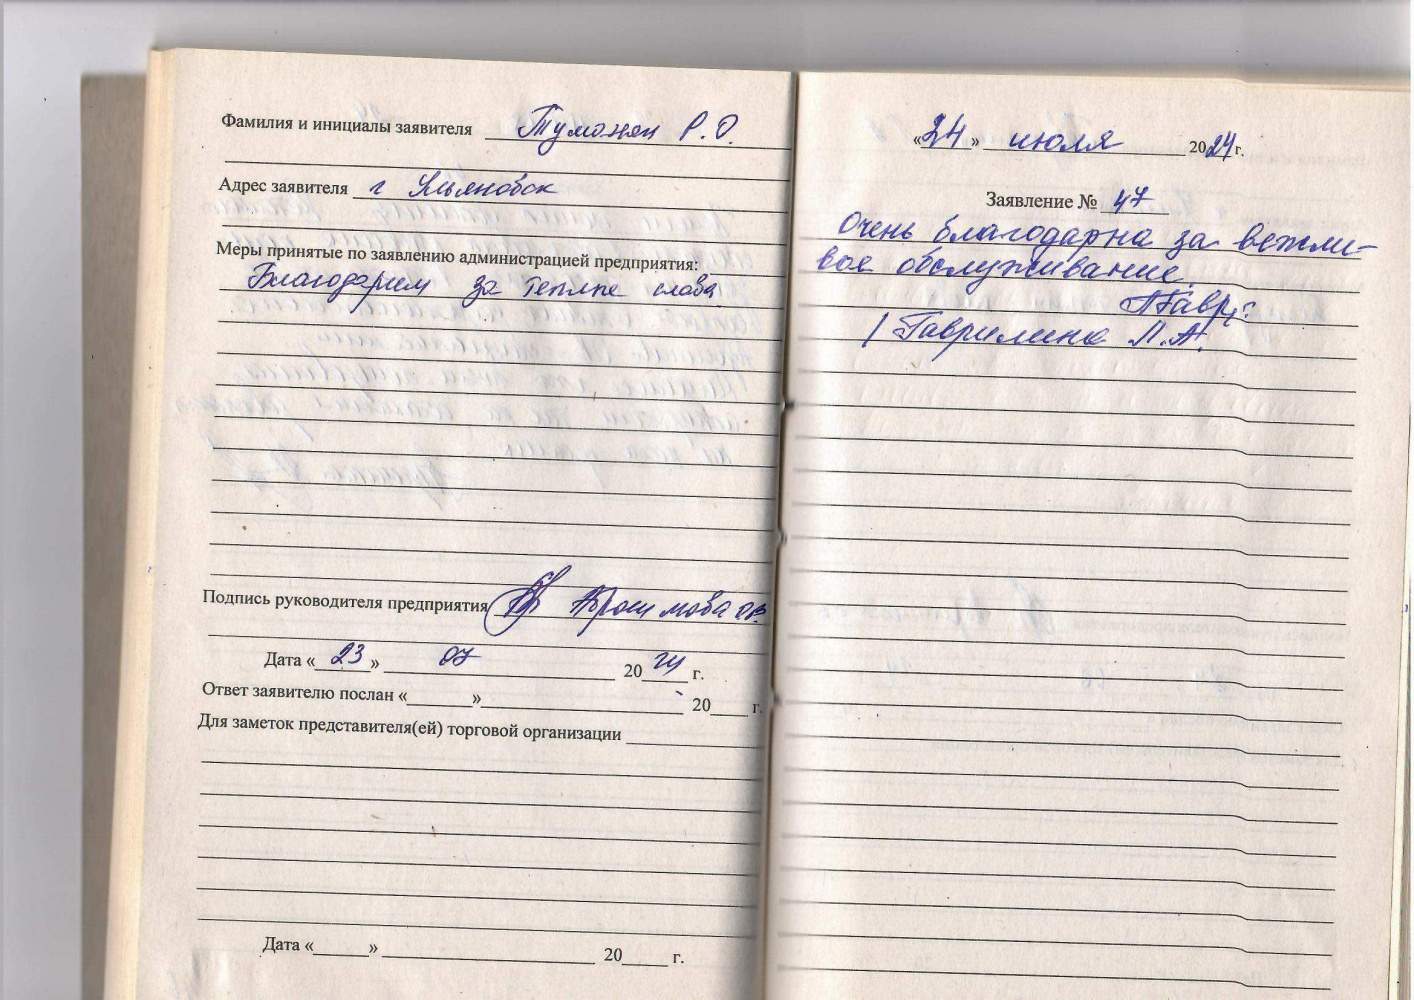 Фамилия и инициалы заявителя Тумонян Р.О.
Адрес заявителя г Ульяновск
Меры принятые по заявлению администрацией предприятия:
Благодарим за теплые слова
Подпись руководителя предприятия Абросимова
Дата «23» 07 2024 г.
Ответ заявителю послан «» 20 г.
Для заметок представителя(ей) торговой организации
Дата «» 20 г.
«24» июля 2024 г.
Заявление № 47
Очень благодарна за вежли-
вое обслуживание.
/Гаврилина Л.А.